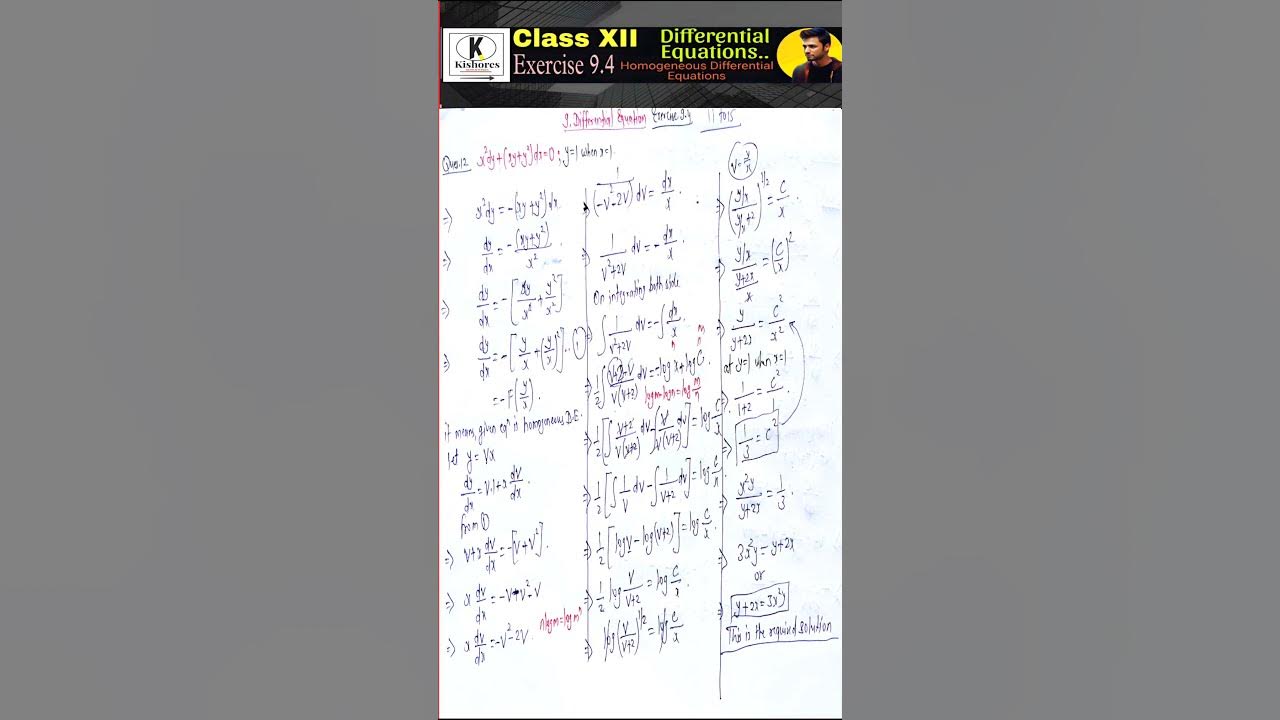 K
Kishores
Class XII
Exercise 9.4
Differential
Equations..
Homogeneous Differential
Equations
9. Differential Equation Exercise 9.4 11 To 15
Ques.12 x²dy+(xy+y²)dx=0; y=1 when x=1.
=> x²dy = -(xy+y²)dx
=> dy/dx = -(xy+y²)/x².
=> dy/dx = -[xy/x² + y²/x²]
=> dy/dx = -[y/x + (y/x)²]...①
= -F(y/x).
it means given eqⁿ is homogeneous D.E.
Let y = Vx
dy/dx = V.1+x dv/dx.
from ①
=> V+x dv/dx = -[V+V²].
=> x dv/dx = -V-V²-V
=> x dv/dx = -V²-2V.
nlogm=logmⁿ
=> 1/(-V²-2V) dV = dx/x.
=> 1/(V²+2V) dV = -dx/x.
On integrating both side
=> ∫ 1/(V²+2V) dV = -∫ dx/x
n m/n
=> 1/2 ∫ (V+2-V)/(V(V+2)) dV = -log x + log C.
logm-logn=log m/n
=> 1/2 [∫ (V+2)/(V(V+2)) dV - ∫ V/(V(V+2)) dV] = log C/x.
=> 1/2 [∫ 1/V dV - ∫ 1/(V+2) dV] = log C/x
=> 1/2 [logV - log(V+2)] = log C/x.
=> 1/2 log V/(V+2) = log C/x.
=> log (V/(V+2))^1/2 = log C/x
V=y/x
=> ((y/x)/(y/x+2))^1/2 = C/x.
=> (y/x)/((y+2x)/x) = (C/x)²
=> y/(y+2x) = C²/x²
at y=1 when x=1
=> 1/(1+2) = C²/1.
=> 1/3 = C²
=> x²y/(y+2x) = 1/3.
=> 3x²y = y+2x
or
=> y+2x = 3x²y
This is the required solution